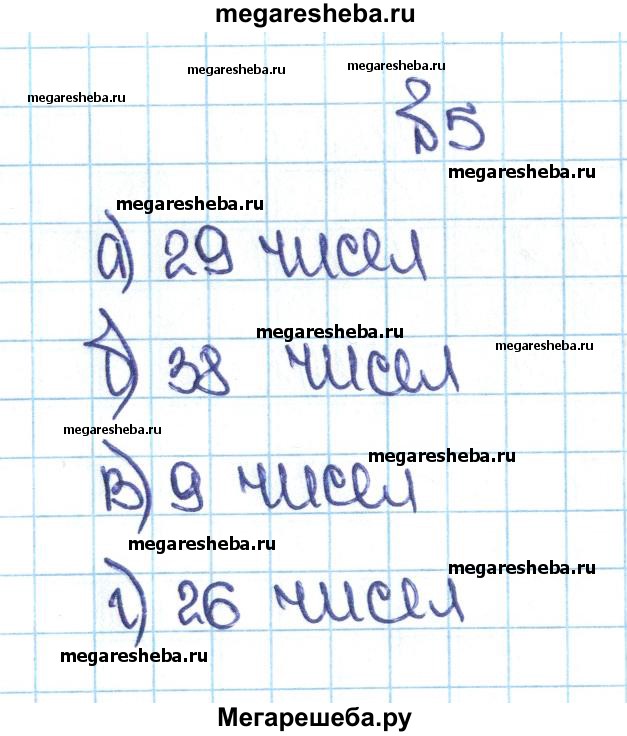 megaresheba.ru
megaresheba.ru megaresheba.ru
megaresheba.ru
№5
megaresheba.ru
megaresheba.ru
а) 29 чисел
megaresheba.ru
megaresheba.ru
б) 38 чисел
megaresheba.ru
megaresheba.ru
в) 9 чисел
megaresheba.ru
megaresheba.ru
г) 26 чисел
megaresheba.ru
Мегарешеба.ру